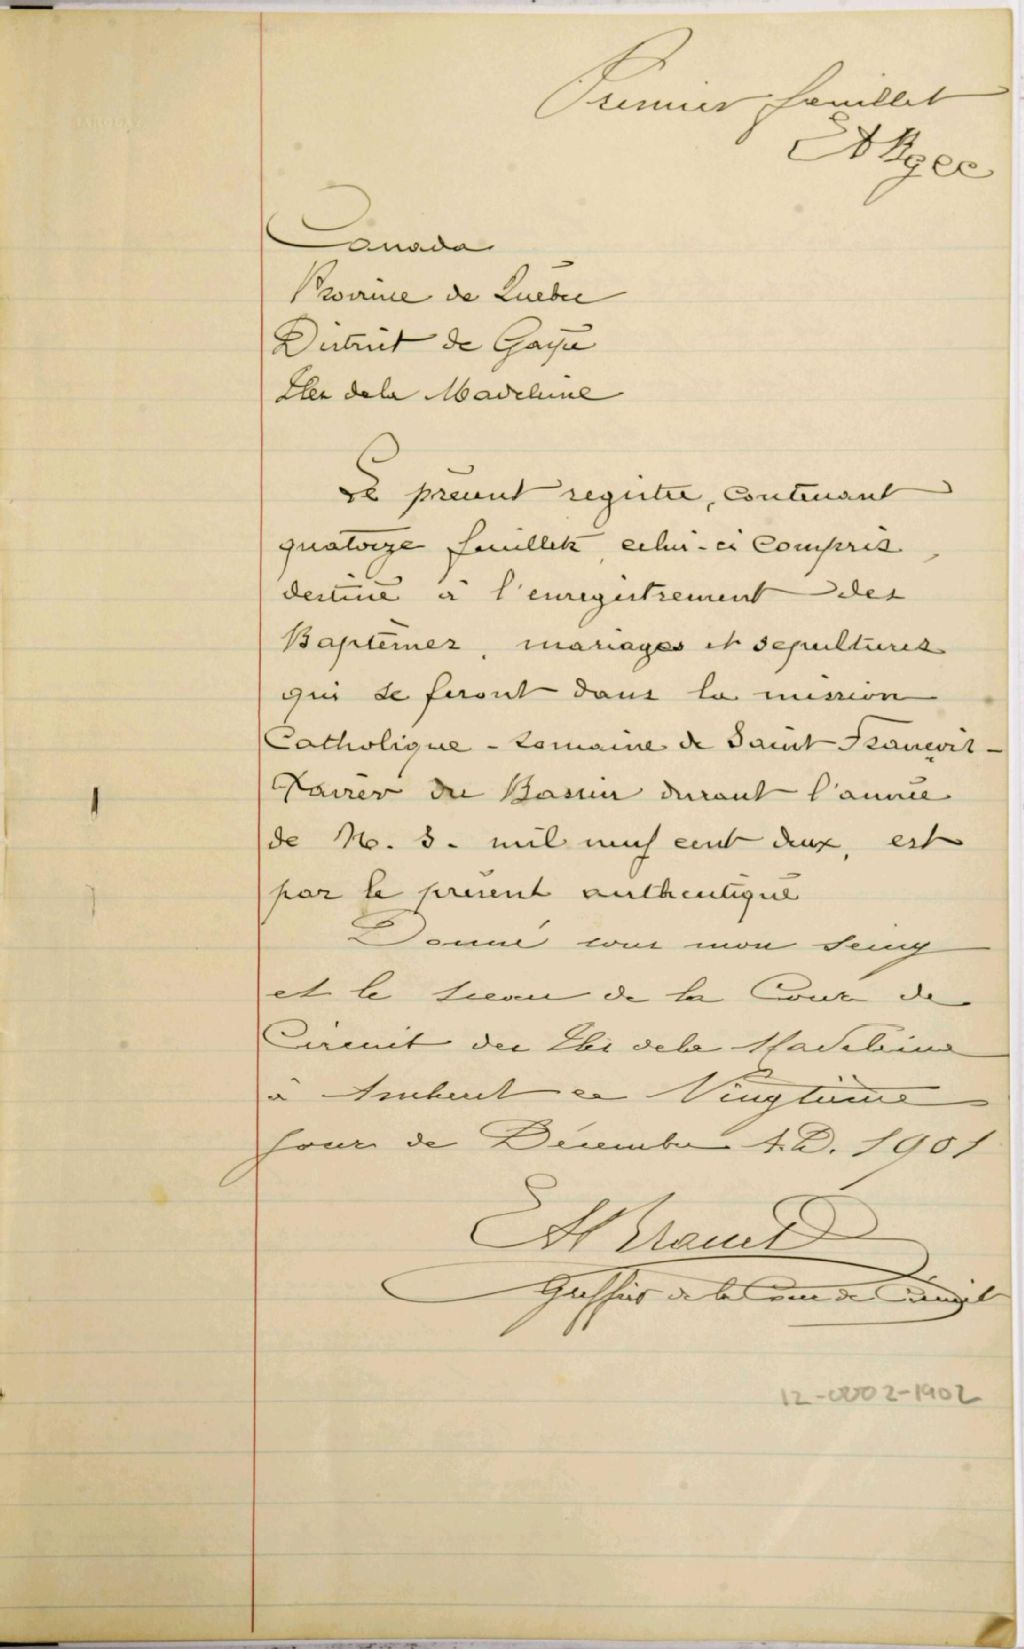 Premier feuillet
Canada
Province de Québec
District de Gaspé
Iles de la Madeleine
Le présent registre, contenant
quatorze feuillets, celui-ci compris,
destiné à l'enregistrement des
Baptêmes, mariages et sepultures
qui se feront dans la mission
Catholique-romaine de Saint François-
Xavier du Bassin durant l'année
de N. S. mil neuf cent deux, est
par le présent authentiqué
Donné sous mon seing
et le sceau de la Cour de
Circuit des Iles de la Madeleine
à Amherst ce Vingtième
jour de Décembre A.D. 1901
Greffier de la Cour de Circuit
12-0002-1902